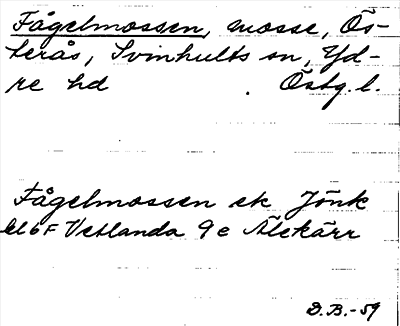 Fågelmossen, mosse, Ös-
terås, Svinhults sn, Yd-
re hd Östg. l.
Fågelmossen ek Jönk
bl 6F Vetlanda 9e Älekärr
D.B.-59